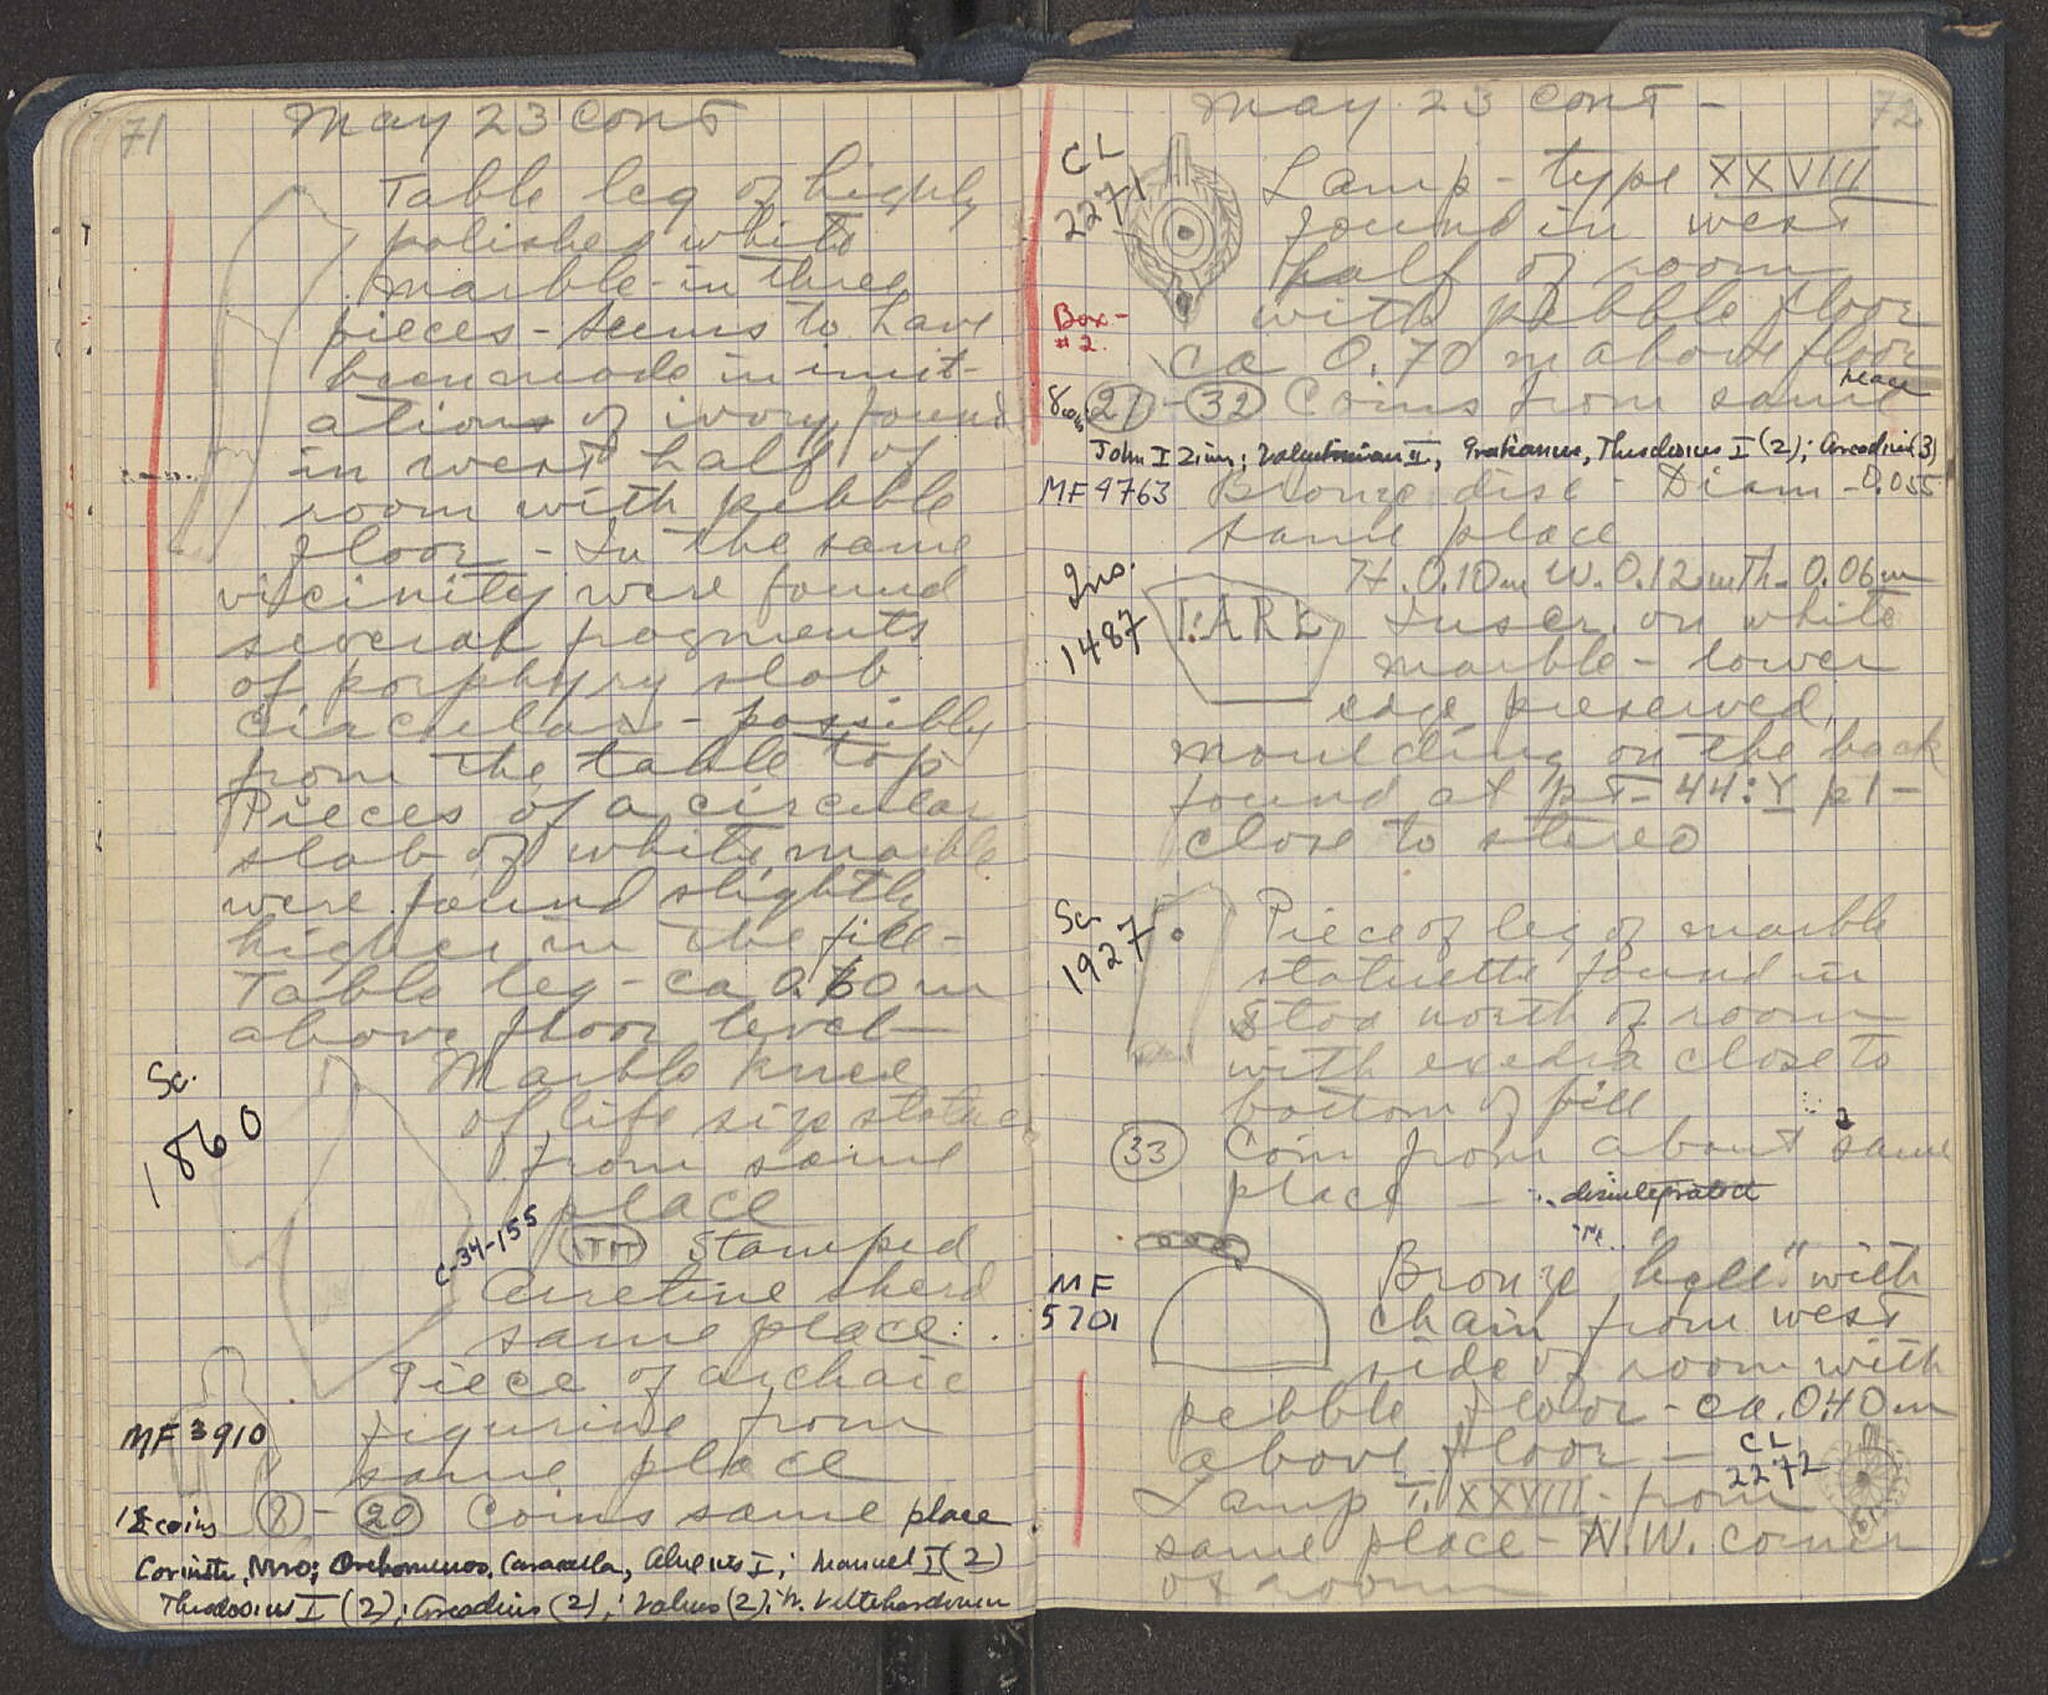 71
May 23 cont
Table leg of highly
polished white
marble - in three
pieces - seems to have
been made in imit-
ation of ivory, found
in west half of
room with pebble
floor - In the same
vicinity were found
several fragments
of porphyry slab
circular - possibly
from the table top
Pieces of a circular
slab of white marble
were found slightly
higher in the fill -
Table leg - ca 0.60 m
above floor level -
Sc.
1860
Marble knee
of life size statue
from same
place
C-34-155
Stamped
Arretine sherd
same place
MF 3910
Piece of archaic
figurine from
same place
coins 8 - 20 Coins same place
Corinth, Nero; Orchomenos, Caracalla, Alexius I; Manuel I (2)
Theodosius I (2); Arcadius (2); Valens (2); W. Villehardouin
72
May 23 cont -
CL
2271
Lamp - type XXVIII
found in west
half of room
with pebble floor
ca 0.70 m above floor
Box -
# 2.
8 coins 21 - 32 Coins from same place
John I Zim; Valentinian II, Gratianus, Theodosius I (2); Arcadius (3)
MF 4763 Bronze disc - Diam - 0.055
same place
H. 0.10m W. 0.12m Th. 0.06m
Ins.
1487
I:ARE
Inscr. on white
marble - lower
edge preserved,
moulding on the back
found at pt - 44:Y pl -
close to stereo
Sc.
1927
Piece of leg of marble
statuette found in
Stoa north of room
with exedra close to
bottom of fill
33 Coin from about same
place - disintegrated
MF
5701
Bronze "bell" with
chain from west
side of room with
pebble floor - ca. 0.40 m
above floor -
CL
2272
Lamp T. XXVIII - from
same place - N.W. corner
of room